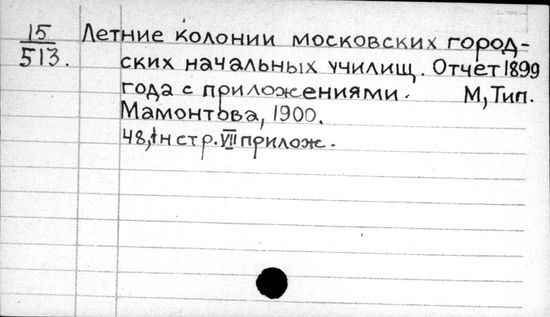 15 Летние колонии московских город-
513. ских начальных училищ. Отчет 1899
года с приложениями. М, Тип.
Мамонтова, 1900.
48, стр. VIII прилож.